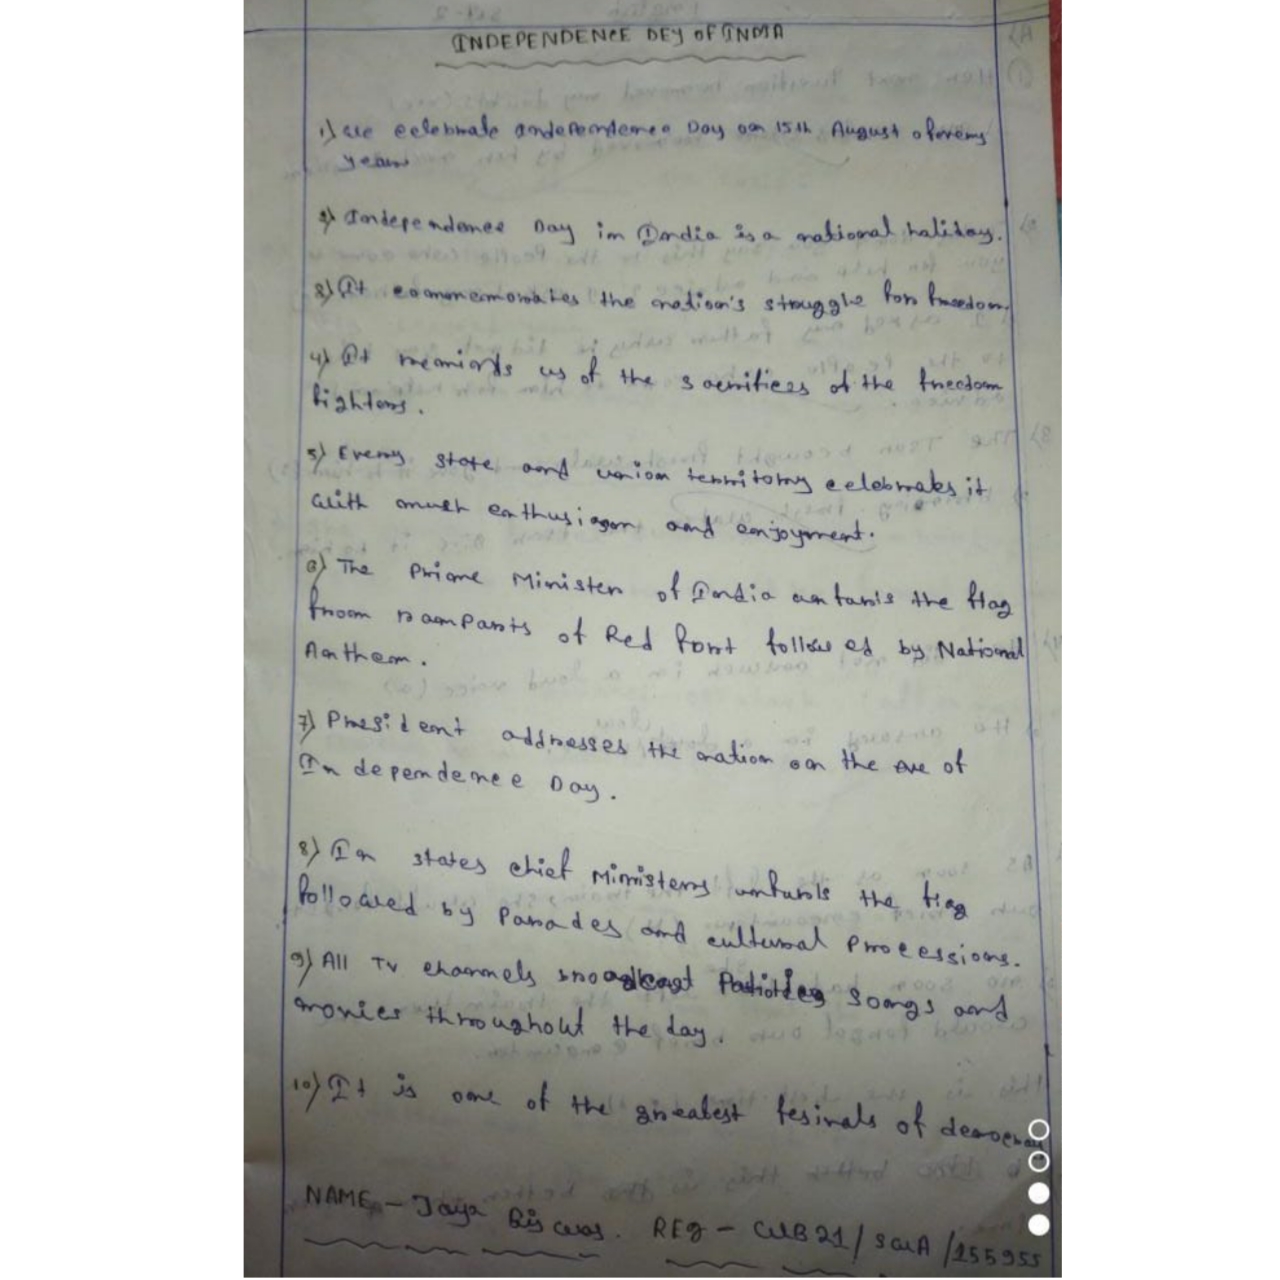 INDEPENDENCE DEY OF INDIA
1) we celebrate independence Day on 15th August of every
year
2) Independence Day in India is a national haliday.
3) It commemorates the nation's struggle for freedom.
4) It remainds us of the sacrifices of the freedom
fighters.
5) Every state and union territory celebrates it
with much enthusiasm and enjoyment.
6) The Prime Minister of India unfurls the flag
from ramparts of Red fort followed by National
Anthem.
7) President addresses the nation on the eve of
Independence Day.
8) In states chief Ministers unfurols the flag
followed by Parades and cultural Processions.
9) All TV channels broadcast Patriotic songs and
movies throughout the day.
10) It is one of the greatest fesivals of democracy
NAME - Jaya Biswas. REG - WB21/SWA/155955